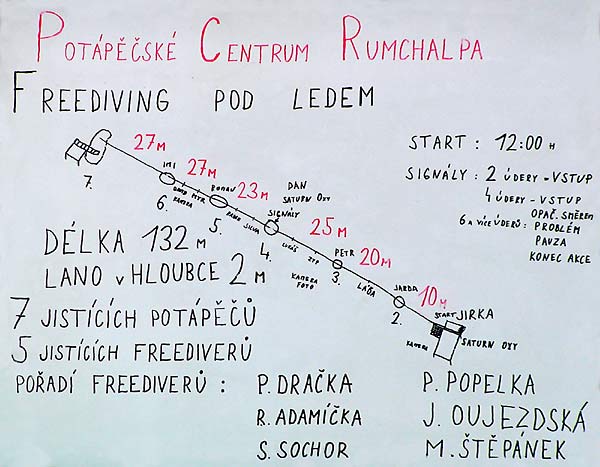 POTÁPĚČSKÉ CENTRUM RUMCHALPA
FREEDIVING POD LEDEM
START : 12:00 H
SIGNÁLY : 2 ÚDERY - VSTUP
4 ÚDERY - VSTUP
OPAČ. SMĚREM
6 A VÍCE ÚDERŮ : PROBLÉM
PAUZA
KONEC AKCE
27 M
7.
27 M
IMI
6.
KAMERA
23 M
BOHOUŠ
5.
DAN
SATURN OXY
SIGNÁLY
4.
25 M
LUKÁŠ
KAMERA
FOTO
PETR
3.
20 M
LÁĎA
JARDA
2.
10 M
START JIRKA
KAMERA
SATURN OXY
DÉLKA 132 M
LANO V HLOUBCE 2 M
7 JISTÍCÍCH POTÁPĚČŮ
5 JISTÍCÍCH FREEDIVERŮ
POŘADÍ FREEDIVERŮ : P. DRAČKA P. POPELKA
R. ADAMÍČKA J. OUJEZDSKÁ
S. SOCHOR M. ŠTĚPÁNEK